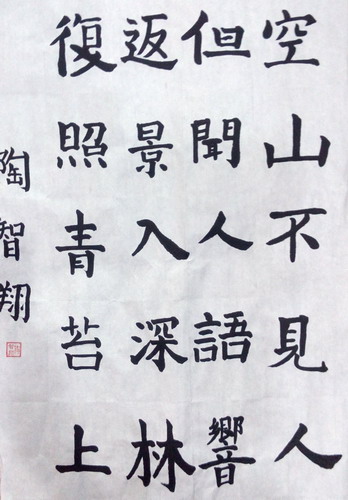 空山不見人
但聞人語響
返景入深林
復照青苔上
陶智翔